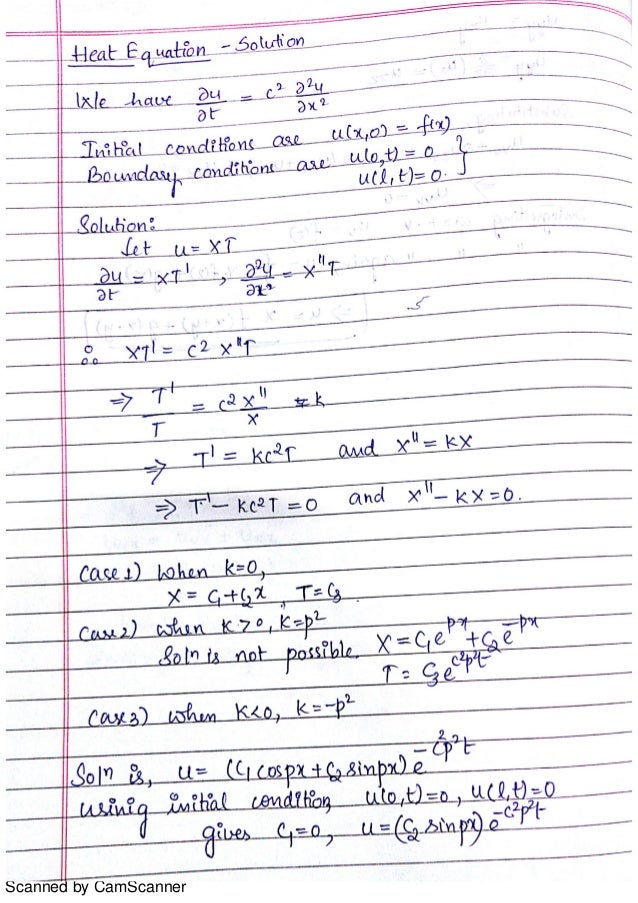 Heat Equation - Solution
We have ∂u/∂t = c² ∂²u/∂x²
Initial conditions are u(x,0) = f(x)
Boundary conditions are u(0,t) = 0 }
u(l,t) = 0.
Solution:
Let u = XT
∂u/∂t = XT' , ∂²u/∂x² = X"T
∴ XT' = c² X"T
⇒ T'/T = c² X"/X = k
⇒ T' = kc²T and X" = kX
⇒ T' - kc²T = 0 and X" - kX = 0.
Case 1) When k=0,
X = C₁+C₂x , T = C₃
Case 2) When k>0, k=p²
Soln is not possible. X = C₁e^px + C₂e^-px
T = C₃e^c²p²t
Case 3) When k<0, k=-p²
Soln is, u = (C₁ cospx + C₂ sinpx) e^-c²p²t
usinig initial condition, u(0,t)=0, u(l,t)=0
gives C₁=0, u = (C₂ sinpx) e^-c²p²t
Scanned by CamScanner